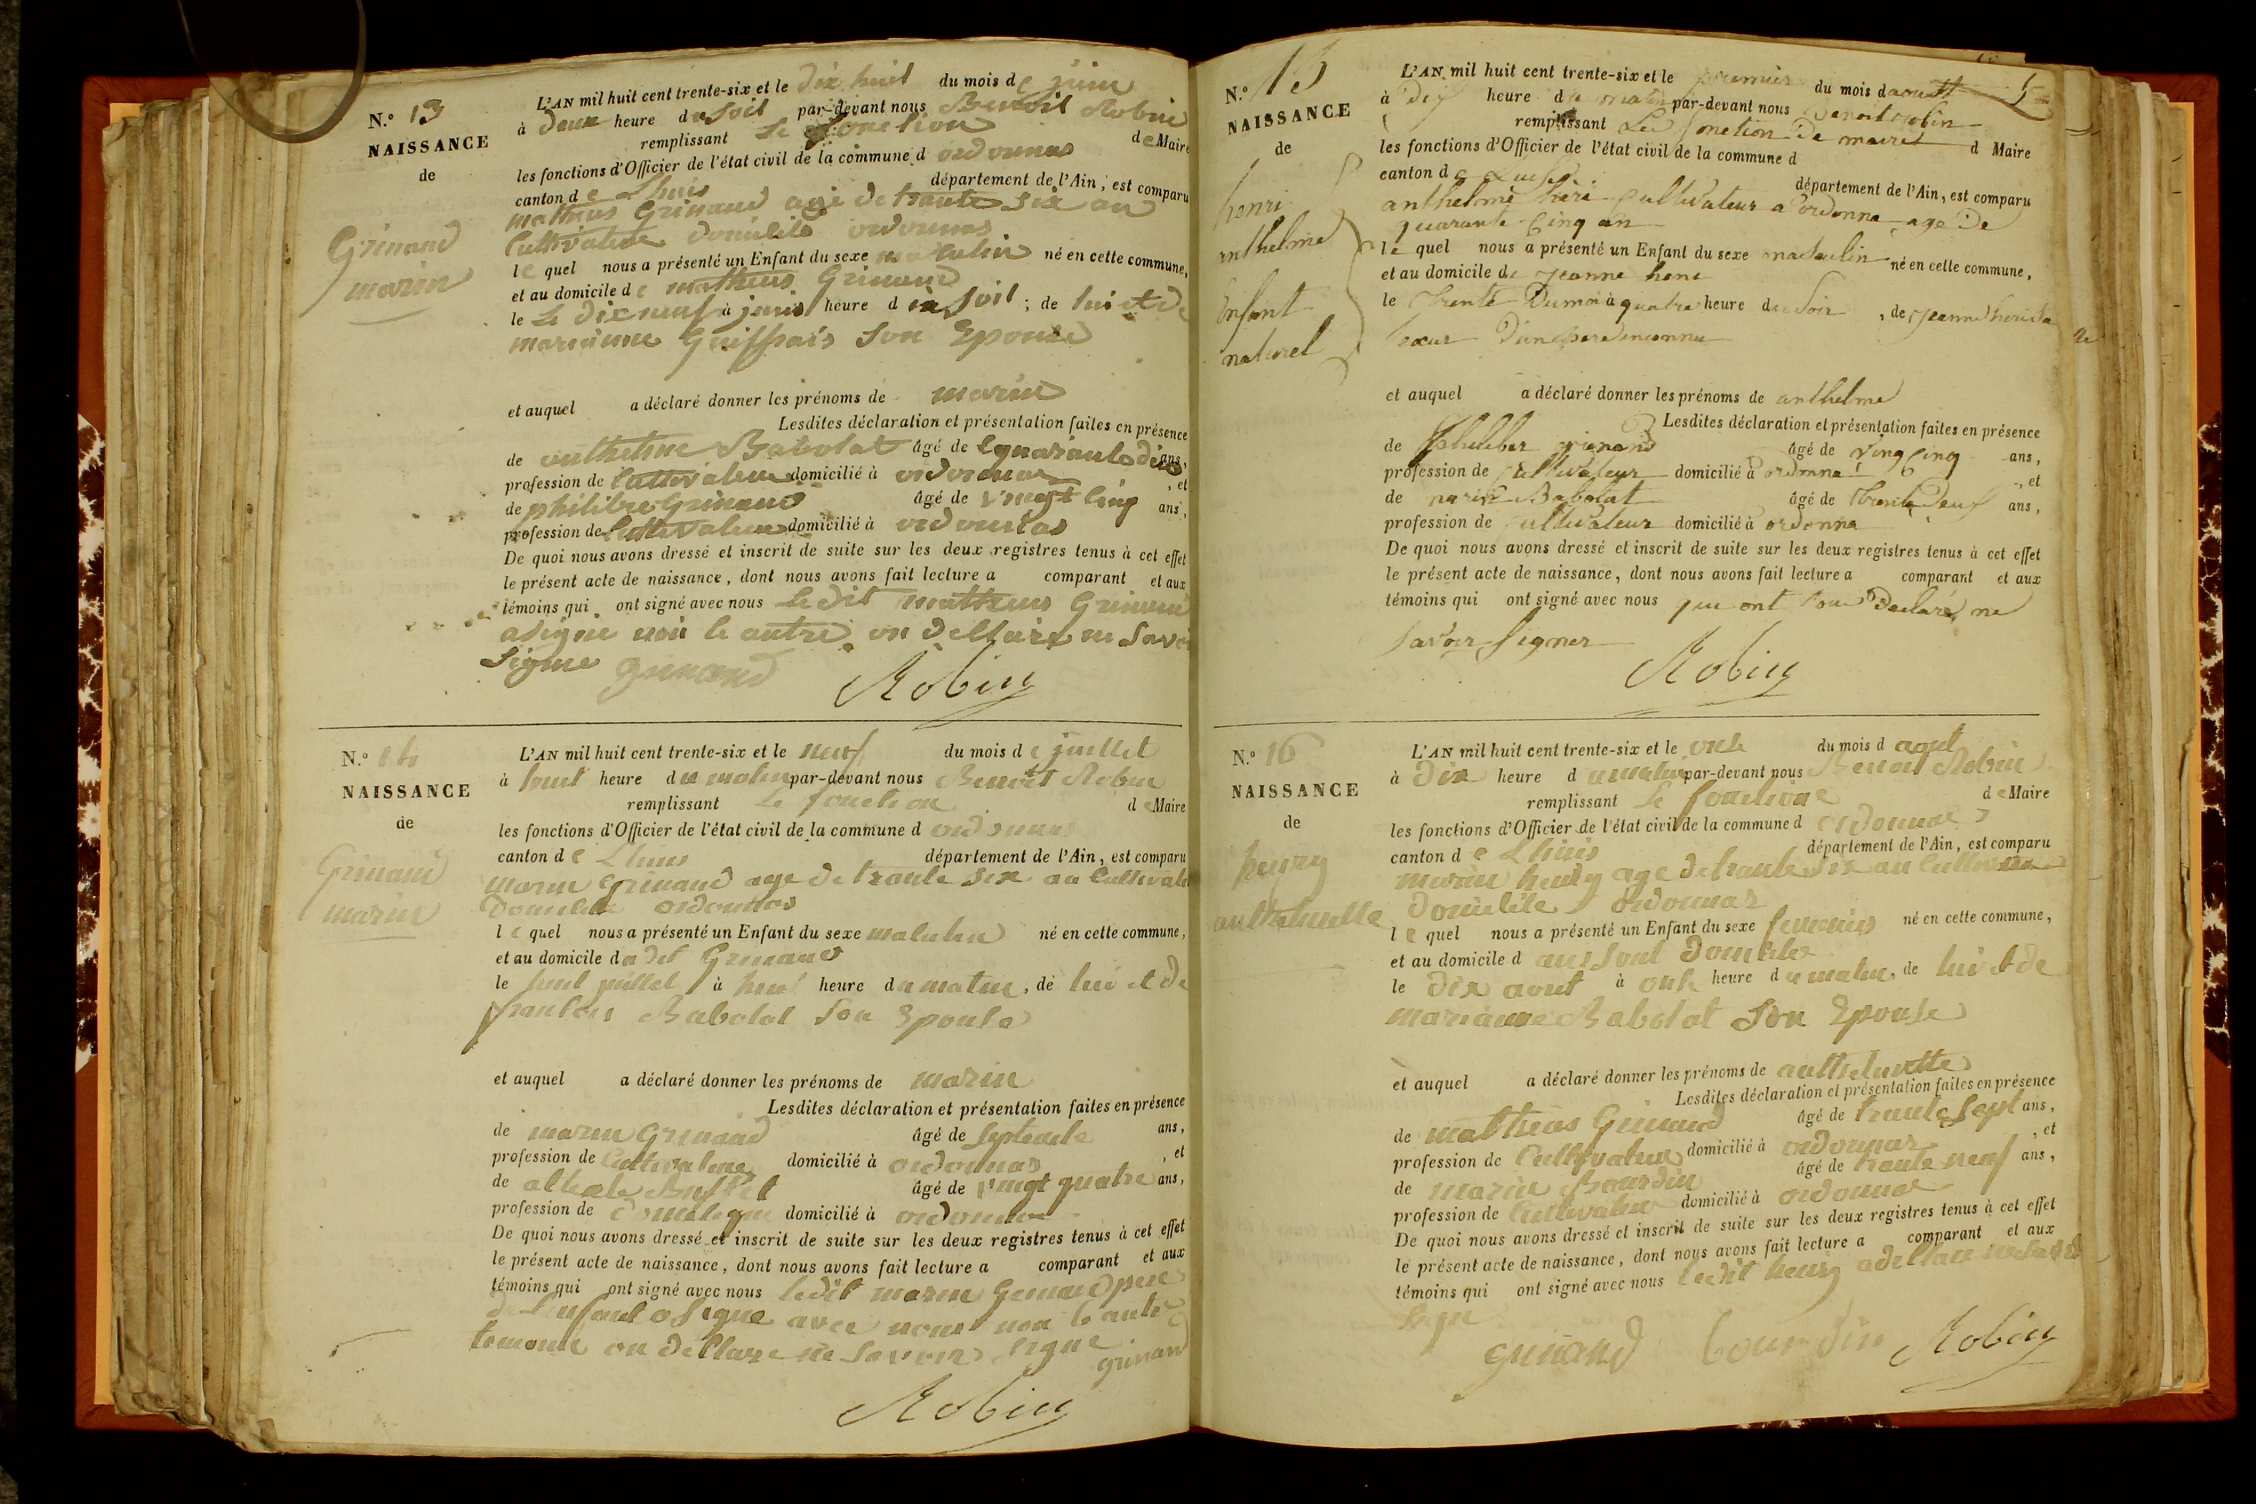 N.° 13
NAISSANCE
de
Grinand
marin
L'AN mil huit cent trente-six et le dix huit du mois de juin
à deux heure du soil par-devant nous Benoit Robin
remplissant le fonction de Maire
les fonctions d'Officier de l'état civil de la commune d ordonnas
canton de Lhuis département de l'Ain, est comparu
matheus Grinand agé de trante six an
Cultivateur domicilié ordonnas
le quel nous a présenté un Enfant du sexe masculin né en cette commune,
et au domicile de matheus Grinand
le Le dix neuf à juin heure d soil ; de lui et de
marianne Guiffrais son Epouse
et auquel a déclaré donner les prénoms de marin
Lesdites déclaration et présentation faites en présence
de anthelme Babolat âgé de quarante dix ans,
profession de Cultivateur domicilié à ordonnas , et
de philibre Grinand âgé de vingt cinq ans,
profession de Cultivateur domicilié à ordonnas
De quoi nous avons dressé et inscrit de suite sur les deux registres tenus à cet effet
le présent acte de naissance, dont nous avons fait lecture a comparant et aux
témoins qui ont signé avec nous Le dit matheus Grinand
a signe non le autre on dellaire ne Savoi
Signe grinand Robin
N.° 14
NAISSANCE
de
Grinand
marin
L'AN mil huit cent trente-six et le neuf du mois de juillet
à huit heure du matin par-devant nous Benoit Robin
remplissant le fonction de Maire
les fonctions d'Officier de l'état civil de la commune d ordonnas
canton de Lhuis département de l'Ain, est comparu
marin Grinand age de trante six an Cultivate
domicilie ordonnas
le quel nous a présenté un Enfant du sexe maculin né en cette commune,
et au domicile du dit Grinand
le huit juillet à huit heure du matin, de lui et de
Babolat son Epouse
et auquel a déclaré donner les prénoms de marin
Lesdites déclaration et présentation faites en présence
de marin Grinand âgé de ans,
profession de Cultivateur domicilié à ordonnas , et
de âgé de vingt quatre ans,
profession de domestique domicilié à ordonnas
De quoi nous avons dressé et inscrit de suite sur les deux registres tenus à cet effet
le présent acte de naissance, dont nous avons fait lecture a comparant et aux
témoins qui ont signé avec nous ledit marin Grinand pere
de lenfant a signe avec nous non le autre
temoin on dellare ne Savoir signe
grinand
Robin
N.° 15
NAISSANCE
de
henri
anthelme
Enfant
naturel
5
L'AN mil huit cent trente-six et le premier du mois d aoutt
à dix heure du matin par-devant nous Benoit robin
remplissant Les fonction de maire d Maire
les fonctions d'Officier de l'état civil de la commune d
canton de département de l'Ain, est comparu
anthelme Cultivateur a ordonna age De
quarante Cinq an
le quel nous a présenté un Enfant du sexe masculin né en cette commune,
et au domicile de jeanne
le trente Dumoi à quatre heure du Soir , de jeanne sa
Sœur D'un pere inconnu
et auquel a déclaré donner les prénoms de anthelme
Lesdites déclaration et présentation faites en présence
de grinand âgé de Ving Cinq ans,
profession de Cultivateur domicilié à ordonna , et
de marin Babolat âgé de trente Deux ans,
profession de Cultivateur domicilié à ordonna
De quoi nous avons dressé et inscrit de suite sur les deux registres tenus à cet effet
le présent acte de naissance, dont nous avons fait lecture a comparant et aux
témoins qui ont signé avec nous qui ont tous Declaré ne
Savoir Signer
Robin
N.° 16
NAISSANCE
de
henry
anthelmette
L'AN mil huit cent trente-six et le onze du mois d aout
à dix heure d umatin par-devant nous Benoit Robin
remplissant le fonction de Maire
les fonctions d'Officier de l'état civil de la commune d ordonnas
canton de Lhuis département de l'Ain, est comparu
marin henry age de trante six an
domicilié ordonnas
le quel nous a présenté un Enfant du sexe feminin né en cette commune,
et au domicile d
le dix aout à onze heure du matin, de lui et de
marianne Babolat Son Epouse
et auquel a déclaré donner les prénoms de anthelmette
Lesdites déclaration et présentation faites en présence
de matheus Grinand âgé de trante sept ans,
profession de Cultivateur domicilié à ordonnas , et
de marin Bourdin âgé de trante neuf ans,
profession de Cultivateur domicilié à ordonnas
De quoi nous avons dressé et inscrit de suite sur les deux registres tenus à cet effet
le présent acte de naissance, dont nous avons fait lecture a comparant et aux
témoins qui ont signé avec nous ledit henry
Signe
grinand bourdin Robin